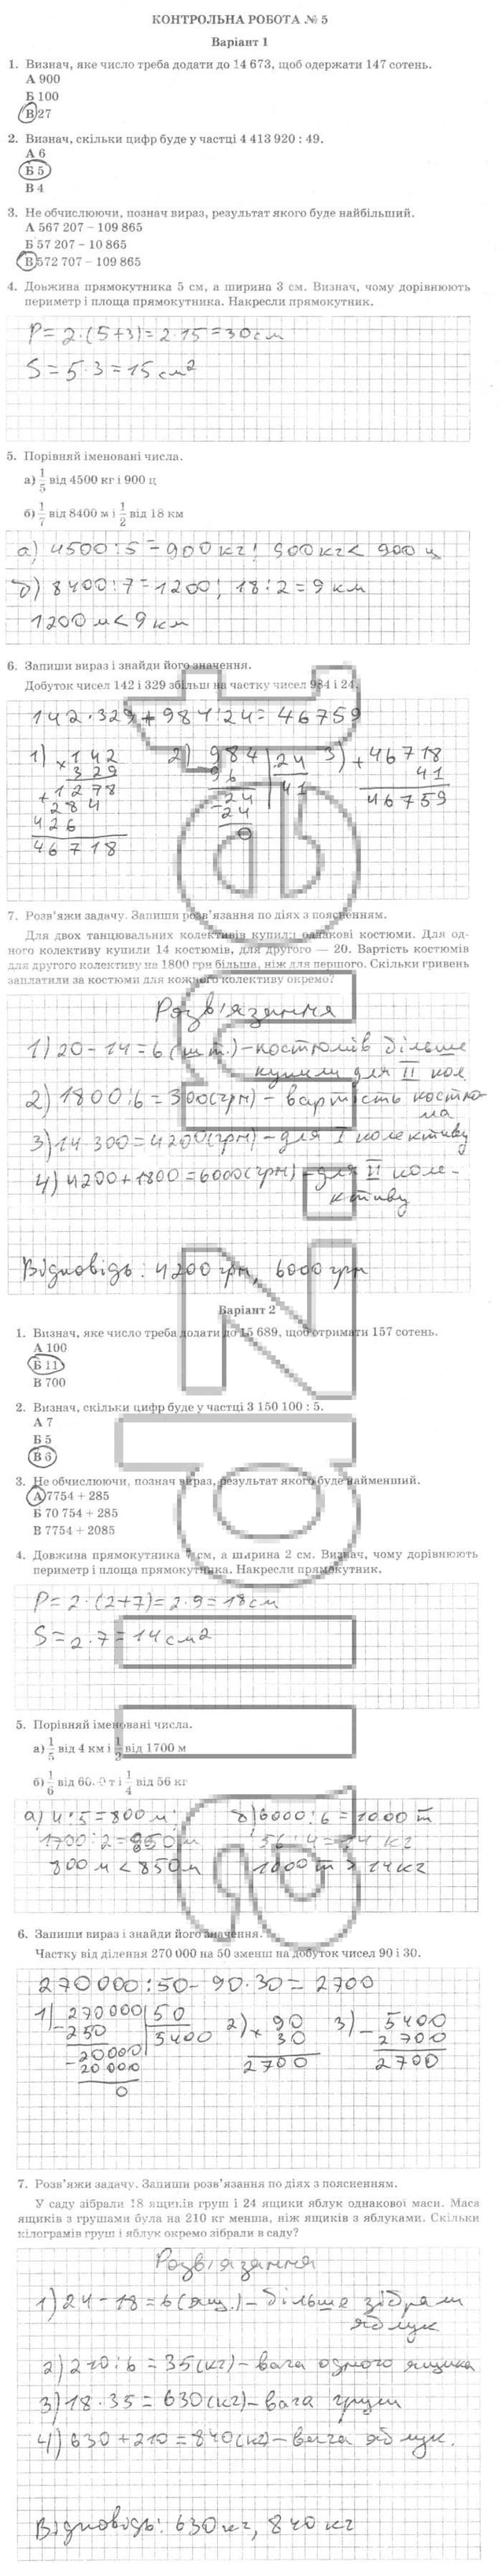 КОНТРОЛЬНА РОБОТА № 5
Варіант 1
1. Визнач, яке число треба додати до 14 673, щоб одержати 147 сотень.
А 900
Б 100
В 27
2. Визнач, скільки цифр буде у частці 4 413 920 : 49.
А 6
Б 5
В 4
3. Не обчислюючи, познач вираз, результат якого буде найбільший.
А 567 207 – 109 865
Б 57 207 – 10 865
В 572 707 – 109 865
4. Довжина прямокутника 5 см, а ширина 3 см. Визнач, чому дорівнюють
периметр і площа прямокутника. Накресли прямокутник.
P = 2·(5+3) = 2·15 = 30 см
S = 5·3 = 15 см²
5. Порівняй іменовані числа.
а) 1/5 від 4500 кг і 900 ц
б) 1/7 від 8400 м і 1/2 від 18 км
а) 4500:5 = 900 кг; 900 кг < 900 ц
б) 8400:7 = 1200; 18:2 = 9 км
1200 м < 9 км
6. Запиши вираз і знайди його значення.
Добуток чисел 142 і 329 збільш на частку чисел 984 і 24.
142·329 + 984:24 = 46759
1) × 142 2) 984 | 24 3) + 46718
329 96 41 41
+ 1278 – 24 46759
284 24
426 0
46718
7. Розв’яжи задачу. Запиши розв’язання по діях з поясненням.
Для двох танцювальних колективів купили однакові костюми. Для од-
ного колективу купили 14 костюмів, для другого — 20. Вартість костюмів
для другого колективу на 1800 грн більша, ніж для першого. Скільки гривень
заплатили за костюми для кожного колективу окремо?
Розв'язання
1) 20 – 14 = 6 (шт.) – костюмів більше
купили для II кол.
2) 1800:6 = 300 (грн) – вартість костю-
ма
3) 14·300 = 4200 (грн) – для I колективу
4) 4200 + 1800 = 6000 (грн) – для II коле-
ктиву
Відповідь: 4200 грн, 6000 грн
Варіант 2
1. Визнач, яке число треба додати до 15 689, щоб отримати 157 сотень.
А 100
Б 11
В 700
2. Визнач, скільки цифр буде у частці 3 150 100 : 5.
А 7
Б 5
В 6
3. Не обчислюючи, познач вираз, результат якого буде найменший.
А 7754 + 285
Б 70 754 + 285
В 7754 + 2085
4. Довжина прямокутника 7 см, а ширина 2 см. Визнач, чому дорівнюють
периметр і площа прямокутника. Накресли прямокутник.
P = 2·(2+7) = 2·9 = 18 см
S = 2·7 = 14 см²
5. Порівняй іменовані числа.
а) 1/5 від 4 км і 1/2 від 1700 м
б) 1/6 від 6000 т і 1/4 від 56 кг
а) 4:5 = 800 м; б) 6000:6 = 1000 т
1700:2 = 850 м 56:4 = 14 кг
800 м < 850 м 1000 т > 14 кг
6. Запиши вираз і знайди його значення.
Частку від ділення 270 000 на 50 зменш на добуток чисел 90 і 30.
270000:50 – 90·30 = 2700
1) – 270000 | 50 2) × 90 3) – 5400
250 5400 30 2700
– 20000 2700 2700
20000
0
7. Розв’яжи задачу. Запиши розв’язання по діях з поясненням.
У саду зібрали 18 ящиків груш і 24 ящики яблук однакової маси. Маса
ящиків з грушами була на 210 кг менша, ніж ящиків з яблуками. Скільки
кілограмів груш і яблук окремо зібрали в саду?
Розв'язання
1) 24 – 18 = 6 (ящ.) – більше зібрали
яблук
2) 210:6 = 35 (кг) – вага одного ящика
3) 18·35 = 630 (кг) – вага груш
4) 630 + 210 = 840 (кг) – вага яблук.
Відповідь: 630 кг, 840 кг